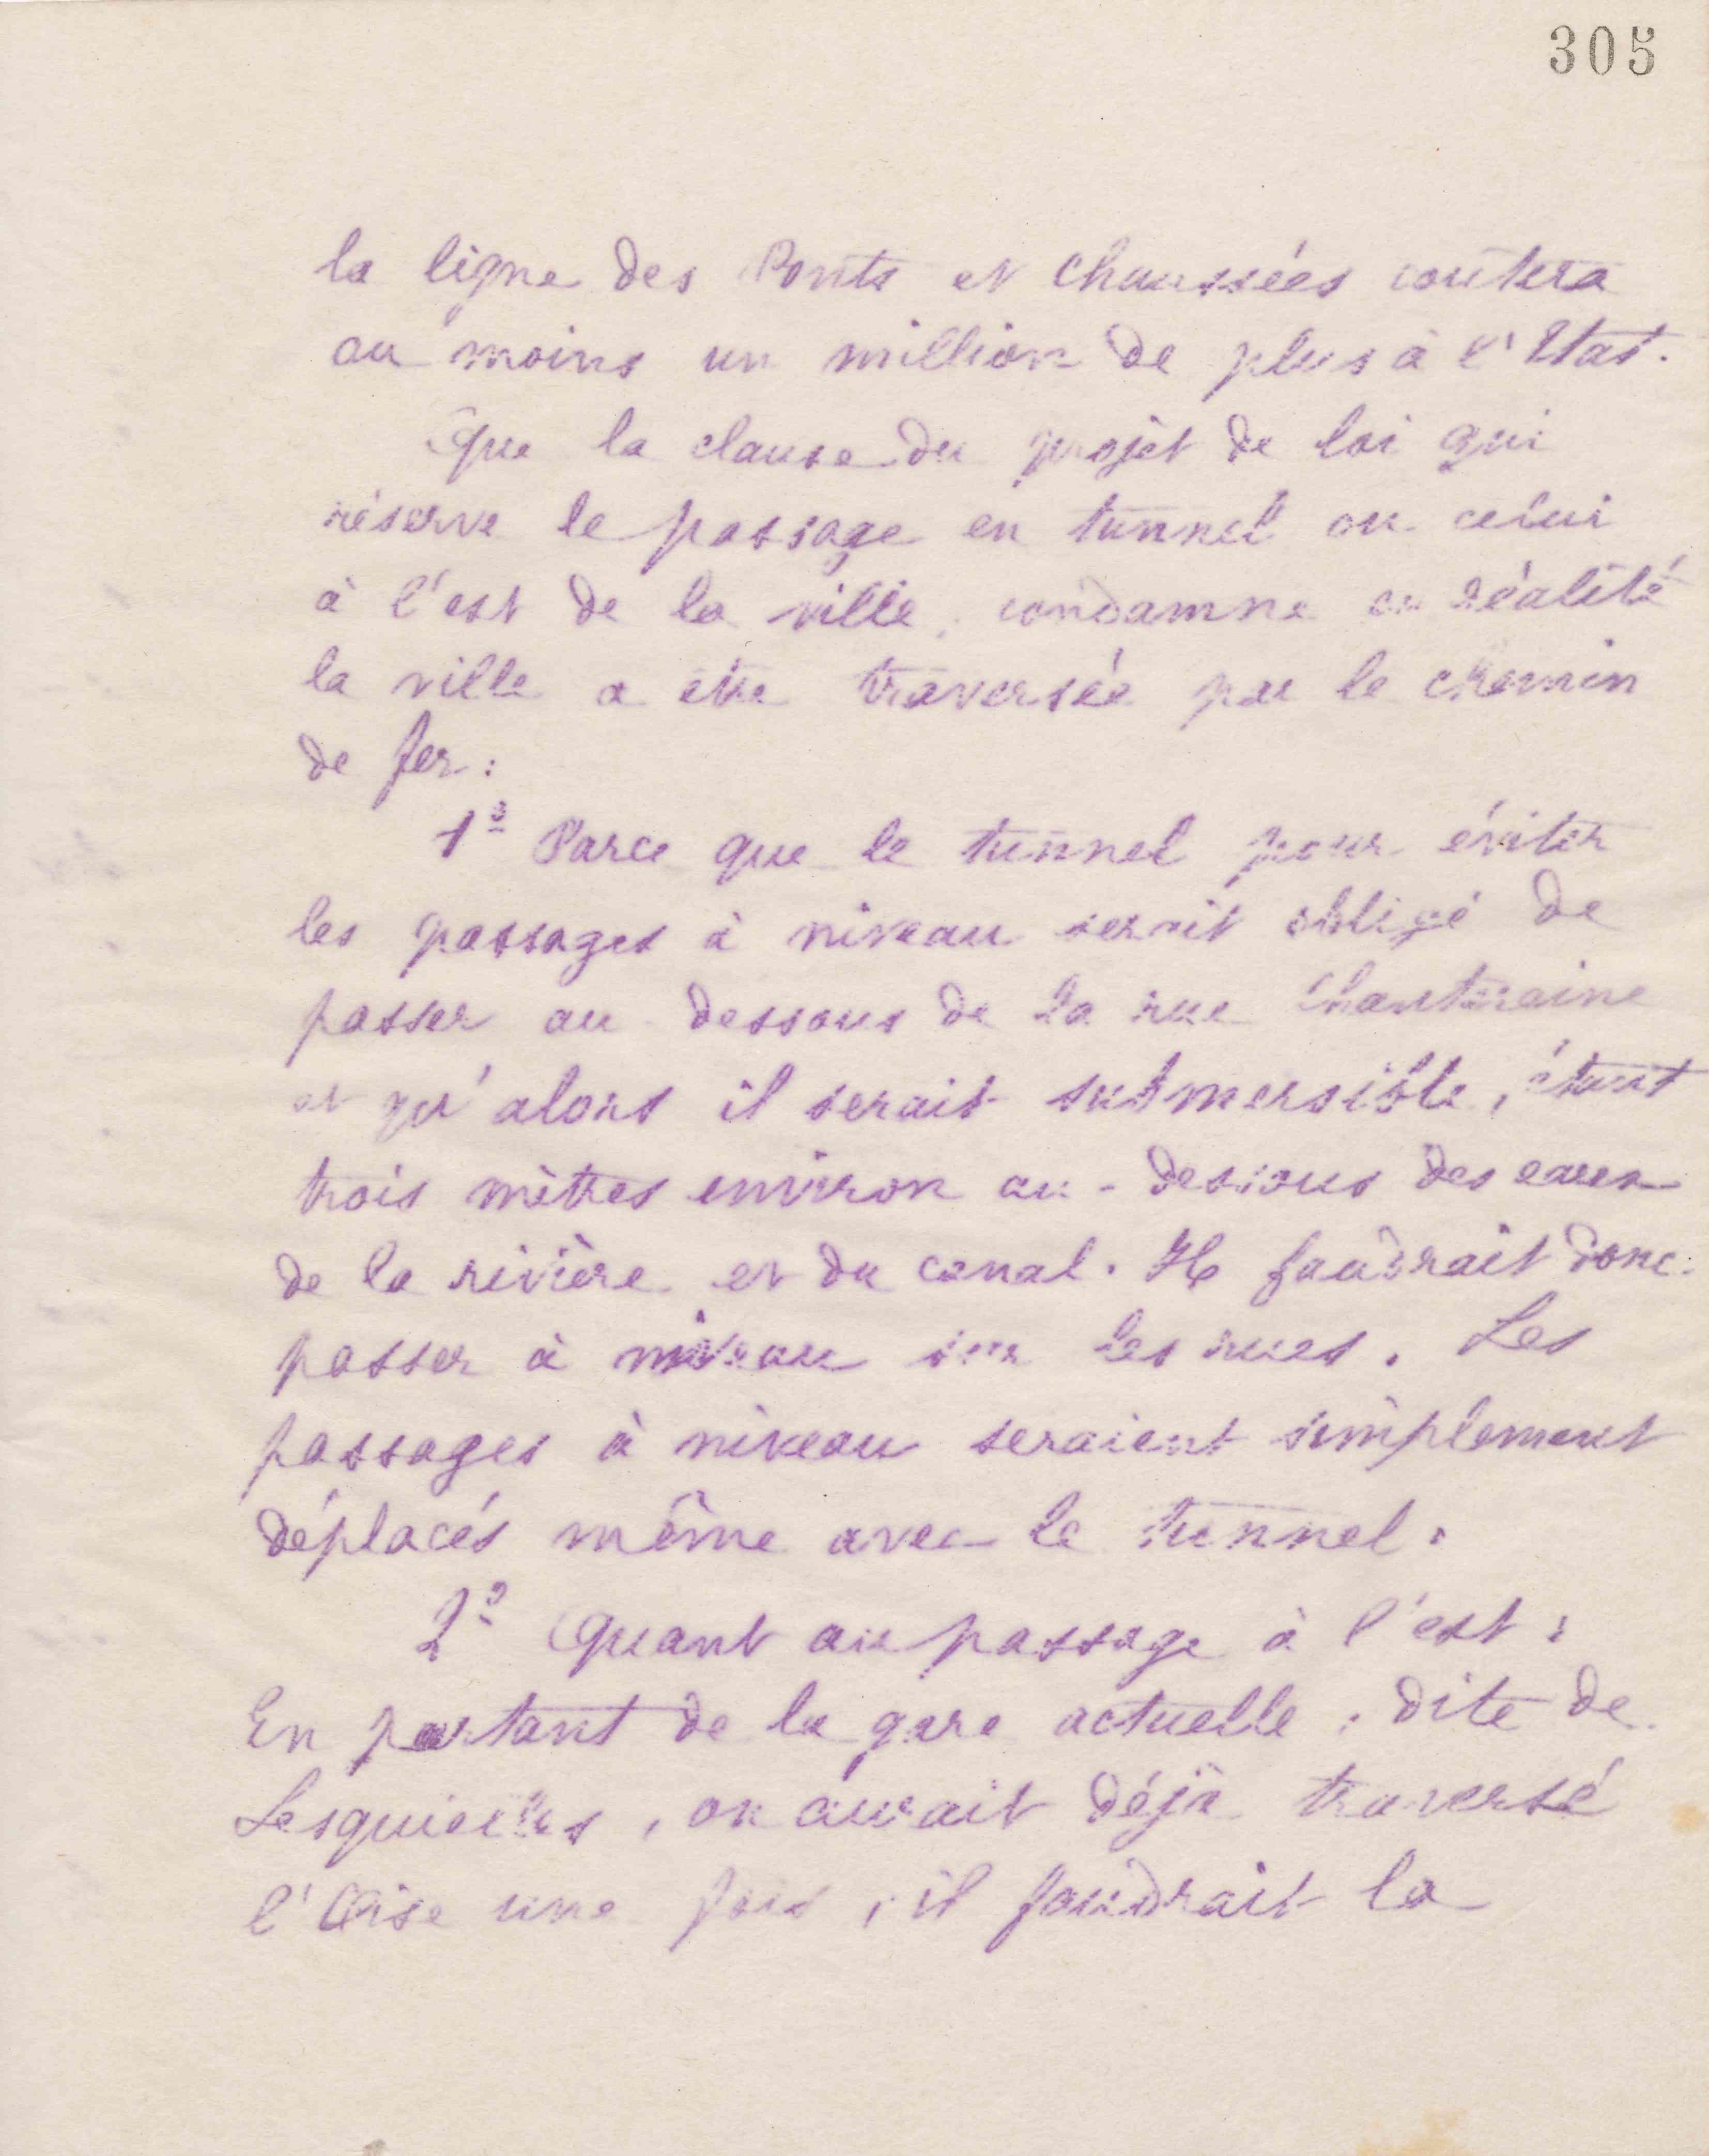 305
la ligne des Ponts et Chaussées coûtera
au moins un million de plus à l'Etat.
Que la clause du projet de loi qui
réserve le passage en tunnel ou celui
à l'est de la ville, condamne en réalité
la ville a être traversée par le chemin
de fer :
1º Parce que le tunnel pour éviter
les passages à niveau serait obligé de
passer au dessous de la rue Chanteraine
et qu'alors il serait submersible, étant
trois mètres environ au-dessous des eaux
de la rivière et du canal. Il faudrait donc
passer à niveau sur les rues. Les
passages à niveau seraient simplement
déplacés même avec le tunnel.
2º Quant au passage à l'est :
En partant de la gare actuelle, dite de
Lesquielles, on aurait déjà traversé
l'Oise une fois, il faudrait la